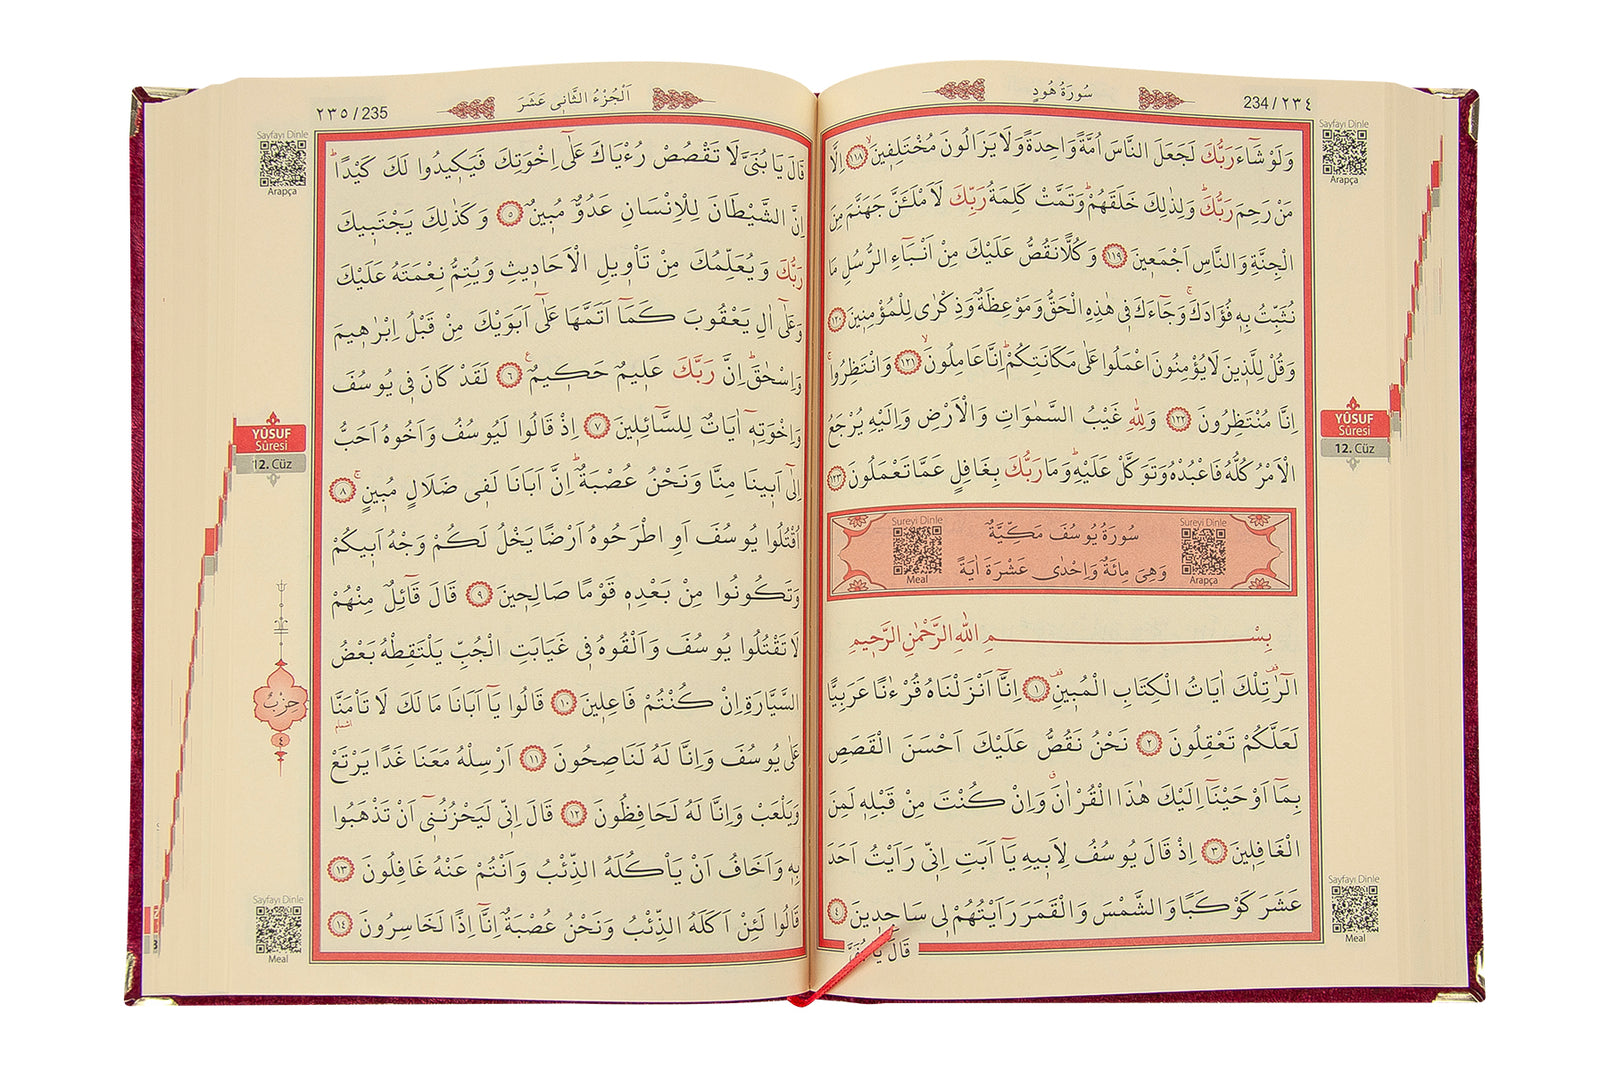 سُورَةُ هُودٍ
234 / ٢٣٤
Sayfayı Dinle
Arapça
وَلَوْ شَٓاءَ رَبُّكَ لَجَعَلَ النَّاسَ اُمَّةً وَاحِدَةً وَلَا يَزَالُونَ مُخْتَلِفٖينَۙ ﴿١١٨﴾ اِلَّا
مَنْ رَحِمَ رَبُّكَۜ وَلِذٰلِكَ خَلَقَهُمْۜ وَتَمَّتْ كَلِمَةُ رَبِّكَ لَاَمْلَـَٔنَّ جَهَنَّمَ مِنَ
الْجِنَّةِ وَالنَّاسِ اَجْمَعٖينَ ﴿١١٩﴾ وَكُلًّا نَقُصُّ عَلَيْكَ مِنْ اَنْبَٓاءِ الرُّسُلِ مَا
نُثَبِّتُ بِهٖ فُؤٰادَكَۚ وَجَٓاءَكَ فٖي هٰذِهِ الْحَقُّ وَمَوْعِظَةٌ وَذِكْرٰى لِلْمُؤْمِنٖينَ ﴿١٢٠﴾
وَقُلْ لِلَّذٖينَ لَا يُؤْمِنُونَ اعْمَلُوا عَلٰى مَكَانَتِكُمْۜ اِنَّا عَامِلُونَۙ ﴿١٢١﴾ وَانْتَظِرُواۚ
اِنَّا مُنْتَظِرُونَ ﴿١٢٢﴾ وَلِلّٰهِ غَيْبُ السَّمٰوَاتِ وَالْاَرْضِ وَاِلَيْهِ يُرْجَعُ
الْاَمْرُ كُلُّهُ فَاعْبُدْهُ وَتَوَكَّلْ عَلَيْهِۜ وَمَا رَبُّكَ بِغَافِلٍ عَمَّا تَعْمَلُونَ ﴿١٢٣﴾
YÛSUF
Sûresi
12. Cüz
Sureyi Dinle
Arapça
سُورَةُ يُوسُفَ مَكِّيَّةٌ
وَهِيَ مِائَةٌ وَاِحْدٰى عَشْرَةَ اٰيَةً
Sureyi Dinle
Meal
بِسْمِ اللّٰهِ الرَّحْمٰنِ الرَّحٖيمِ
الٓرٰ۠ تِلْكَ اٰيَاتُ الْكِتَابِ الْمُبٖينِ۠ ﴿١﴾ اِنَّٓا اَنْزَلْنَاهُ قُرْءٰنًا عَرَبِيًّا
لَعَلَّكُمْ تَعْقِلُونَ ﴿٢﴾ نَحْنُ نَقُصُّ عَلَيْكَ اَحْسَنَ الْقَصَصِ
بِمَٓا اَوْحَيْنَٓا اِلَيْكَ هٰذَا الْقُرْاٰنَۗ وَاِنْ كُنْتَ مِنْ قَبْلِهٖ لَمِنَ
الْغَافِلٖينَ ﴿٣﴾ اِذْ قَالَ يُوسُفُ لِاَبٖيهِ يَٓا اَبَتِ اِنّٖي رَاَيْتُ اَحَدَ
عَشَرَ كَوْكَبًا وَالشَّمْسَ وَالْقَمَرَ رَاَيْتُهُمْ لٖي سَاجِدٖينَ ﴿٤﴾
قَالَ يَا بُنَيَّ
Sayfayı Dinle
Meal
235 / ٢٣٥
اَلْجُزْءُ الثَّانٖي عَشَرَ
Sayfayı Dinle
Arapça
قَالَ يَا بُنَيَّ لَا تَقْصُصْ رُءْيَاكَ عَلٰٓى اِخْوَتِكَ فَيَكٖيدُوا لَكَ كَيْدًاۜ
اِنَّ الشَّيْطَانَ لِلْاِنْسَانِ عَدُوٌّ مُبٖينٌ ﴿٥﴾ وَكَذٰلِكَ يَجْتَبٖيكَ
رَبُّكَ وَيُعَلِّمُكَ مِنْ تَأْوٖيلِ الْاَحَادٖيثِ وَيُتِمُّ نِعْمَتَهُ عَلَيْكَ
وَعَلٰٓى اٰلِ يَعْقُوبَ كَمَٓا اَتَمَّهَا عَلٰٓى اَبَوَيْكَ مِنْ قَبْلُ اِبْرٰهٖيمَ
وَاِسْحٰقَۜ اِنَّ رَبَّكَ عَلٖيمٌ حَكٖيمٌࣖ ﴿٦﴾ لَقَدْ كَانَ فٖي يُوسُفَ
وَاِخْوَتِهٖٓ اٰيَاتٌ لِلسَّٓائِلٖينَ ﴿٧﴾ اِذْ قَالُوا لَيُوسُفُ وَاَخُوهُ اَحَبُّ
اِلٰٓى اَبٖينَا مِنَّا وَنَحْنُ عُصْبَةٌۜ اِنَّ اَبَانَا لَفٖي ضَلَالٍ مُبٖينٍۚ ﴿٨﴾
اُقْتُلُوا يُوسُفَ اَوِ اطْرَحُوهُ اَرْضًا يَخْلُ لَكُمْ وَجْهُ اَبٖيكُمْ
وَتَكُونُوا مِنْ بَعْدِهٖ قَوْمًا صَالِحٖينَ ﴿٩﴾ قَالَ قَٓائِلٌ مِنْهُمْ
لَا تَقْتُلُوا يُوسُفَ وَاَلْقُوهُ فٖي غَيَابَتِ الْجُبِّ يَلْتَقِطْهُ بَعْضُ
السَّيَّارَةِ اِنْ كُنْتُمْ فَاعِلٖينَ ﴿١٠﴾ قَالُوا يَٓا اَبَانَا مَا لَكَ لَا تَأْمَنَّا
اشمام
عَلٰى يُوسُفَ وَاِنَّا لَهُ لَنَاصِحُونَ ﴿١١﴾ اَرْسِلْهُ مَعَنَا غَدًا يَرْتَعْ
وَيَلْعَبْ وَاِنَّا لَهُ لَحَافِظُونَ ﴿١٢﴾ قَالَ اِنّٖي لَيَحْزُنُنٖٓي اَنْ تَذْهَبُوا
بِهٖ وَاَخَافُ اَنْ يَأْكُلَهُ الذِّئْبُ وَاَنْتُمْ عَنْهُ غَافِلُونَ ﴿١٣﴾
قَالُوا لَئِنْ اَكَلَهُ الذِّئْبُ وَنَحْنُ عُصْبَةٌ اِنَّٓا اِذًا لَخَاسِرُونَ ﴿١٤﴾
YÛSUF
Sûresi
12. Cüz
حِزْبُ
٤
Sayfayı Dinle
Meal